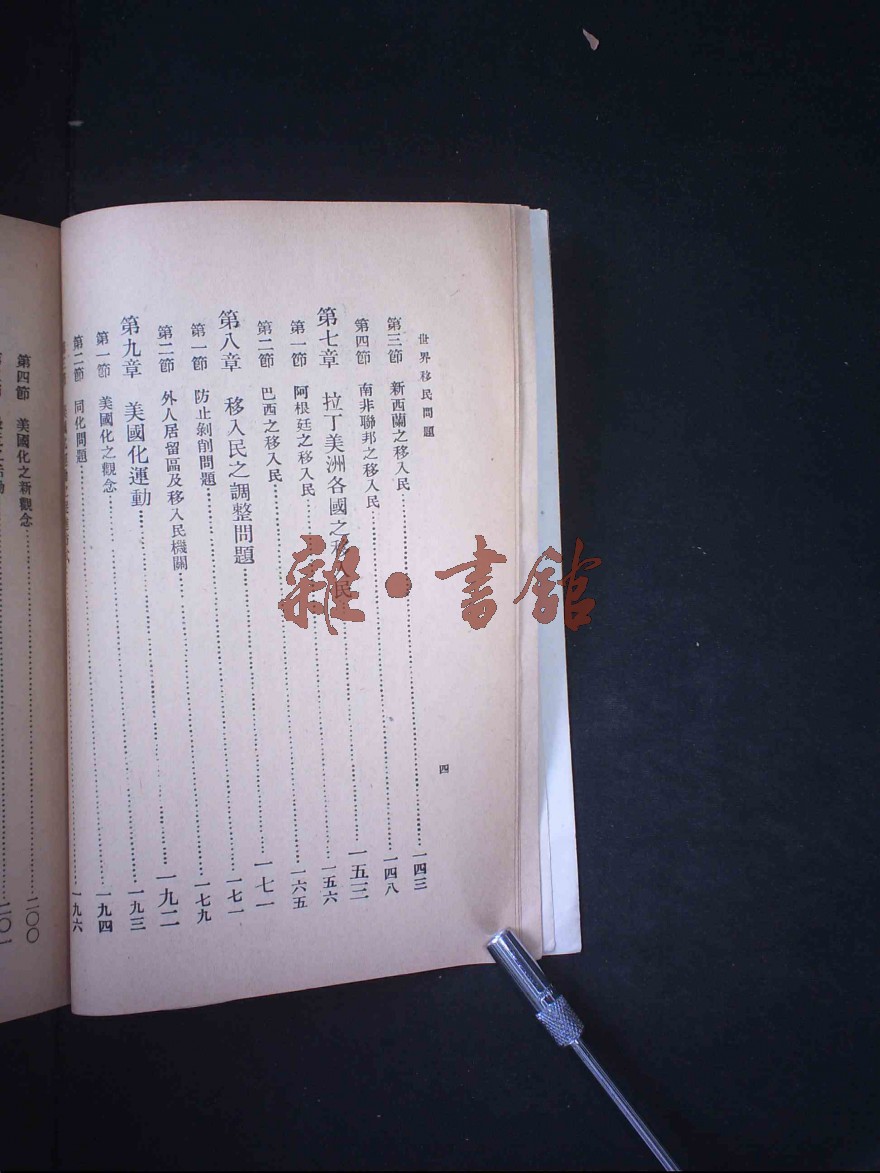 世界移民問題 四
第三節 新西蘭之移入民……一四三
第四節 南非聯邦之移入民……一四八
第七章 拉丁美洲各國之移入民……一五三
第一節 阿根廷之移入民……一五六
第二節 巴西之移入民……一六五
第八章 移入民之調整問題……一七一
第一節 防止剝削問題……一七一
第二節 外人居留區及移入民機關……一七九
第九章 美國化運動……一九二
第一節 美國化之觀念……一九三
第二節 同化問題……一九四
一九六
第四節 美國化之新觀念……二〇〇
二〇一
雜·書館